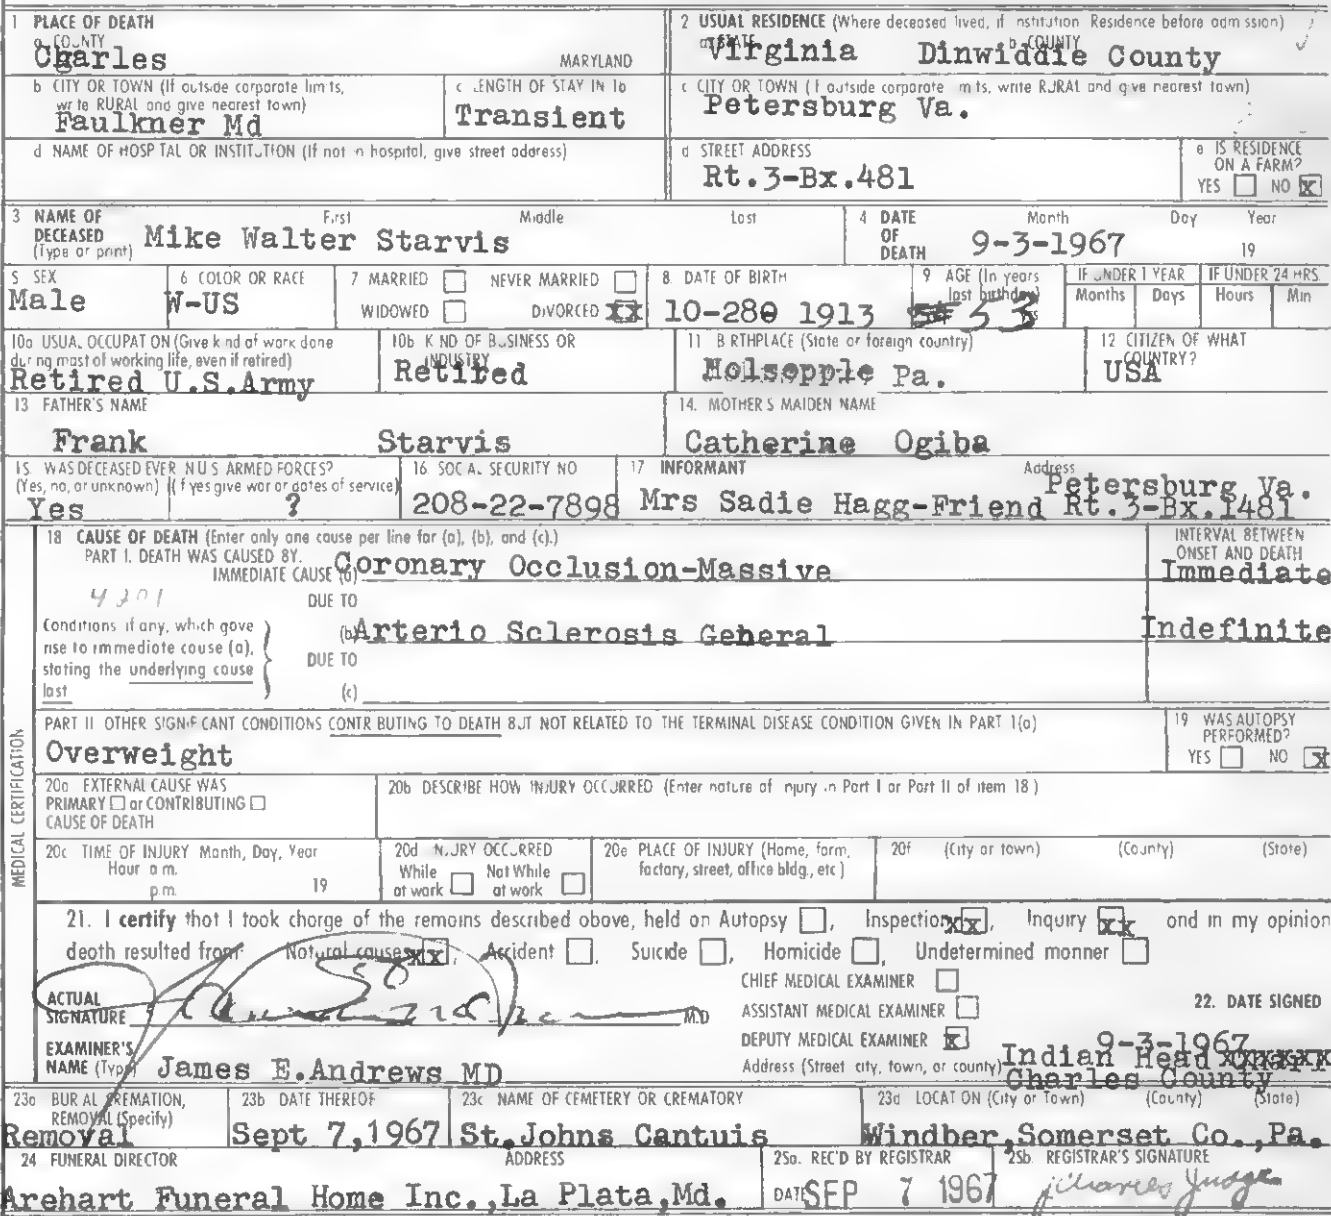 1 PLACE OF DEATH
a COUNTY
Charles
MARYLAND
2 USUAL RESIDENCE (Where deceased lived, if nstitution Residence before adm ssion)
a STATE
Virginia
b COUNTY
Dinwiddie County
b CITY OR TOWN (If outside corporate limits,
write RURAL and give nearest town)
Faulkner Md
c LENGTH OF STAY IN 1b
Transient
c CITY OR TOWN (If outside corporate m ts, write RURAL and give nearest town)
Petersburg Va.
d NAME OF HOSP TAL OR INSTITUTION (If not in hospital, give street address)
d STREET ADDRESS
Rt.3-Bx.481
e IS RESIDENCE
ON A FARM?
YES NO X
3 NAME OF
DECEASED
(Type or print)
First Middle Last
Mike Walter Starvis
4 DATE
OF
DEATH
Month Day Year
9-3-1967
19
5 SEX
Male
6 COLOR OR RACE
W-US
7 MARRIED NEVER MARRIED
WIDOWED DIVORCED XX
8. DATE OF BIRTH
10-28 1913
9 AGE (In years
last birthday)
53
IF UNDER 1 YEAR
Months Days
IF UNDER 24 HRS.
Hours Min
10a USUAL OCCUPATION (Give kind of work done
during most of working life, even if retired)
Retired U.S.Army
10b KIND OF BUSINESS OR
INDUSTRY
Retired
11 BIRTHPLACE (State or foreign country)
Holsopple Pa.
12 CITIZEN OF WHAT
COUNTRY?
USA
13 FATHER'S NAME
Frank Starvis
14. MOTHER S MAIDEN NAME
Catherine Ogiba
15. WAS DECEASED EVER IN U S ARMED FORCES?
(Yes, no, or unknown) (If yes give war or dates of service)
Yes ?
16 SOCIAL SECURITY NO
208-22-7898
17 INFORMANT
Address
Petersburg Va.
Mrs Sadie Hagg-Friend Rt.3-Bx.1481
18 CAUSE OF DEATH (Enter only one cause per line for (a), (b), and (c).)
PART I. DEATH WAS CAUSED BY.
IMMEDIATE CAUSE (a) Coronary Occlusion-Massive
INTERVAL BETWEEN
ONSET AND DEATH
Immediate
4201
DUE TO
Conditions if any, which gave
rise to immediate cause (a),
stating the underlying cause
last
(b) Arterio Sclerosis General
Indefinite
DUE TO
(c)
PART II OTHER SIGNIFICANT CONDITIONS CONTRIBUTING TO DEATH BUT NOT RELATED TO THE TERMINAL DISEASE CONDITION GIVEN IN PART 1(a)
Overweight
19 WAS AUTOPSY
PERFORMED?
YES NO X
MEDICAL CERTIFICATION
20a EXTERNAL CAUSE WAS
PRIMARY or CONTRIBUTING
CAUSE OF DEATH
20b DESCRIBE HOW INJURY OCCURRED (Enter nature of injury in Part I or Part II of item 18)
20c TIME OF INJURY Month, Day, Year
Hour a m.
p.m. 19
20d INJURY OCCURRED
While at work Not While at work
20e PLACE OF INJURY (Home, farm,
factory, street, office bldg., etc )
20f (City or town) (County) (State)
21. I certify that I took charge of the remains described above, held an Autopsy , Inspection xx , Inquiry xx and in my opinion
death resulted from Natural causes xx , Accident , Suicide , Homicide , Undetermined manner
CHIEF MEDICAL EXAMINER
ASSISTANT MEDICAL EXAMINER
DEPUTY MEDICAL EXAMINER X
ACTUAL
SIGNATURE
M.D
22. DATE SIGNED
9-3-1967
EXAMINER'S
NAME (Type) James E.Andrews MD
Address (Street city, town, or county) Indian Head
Charles County
23a BURIAL CREMATION,
REMOVAL (Specify)
Removal
23b DATE THEREOF
Sept 7,1967
23c NAME OF CEMETERY OR CREMATORY
St.Johns Cantuis
23d LOCATION (City or Town) (County) (State)
Windber,Somerset Co.,Pa.
24 FUNERAL DIRECTOR ADDRESS
Arehart Funeral Home Inc.,La Plata,Md.
25a. REC'D BY REGISTRAR
DATE SEP 7 1967
25b. REGISTRAR'S SIGNATURE
Charles Judge